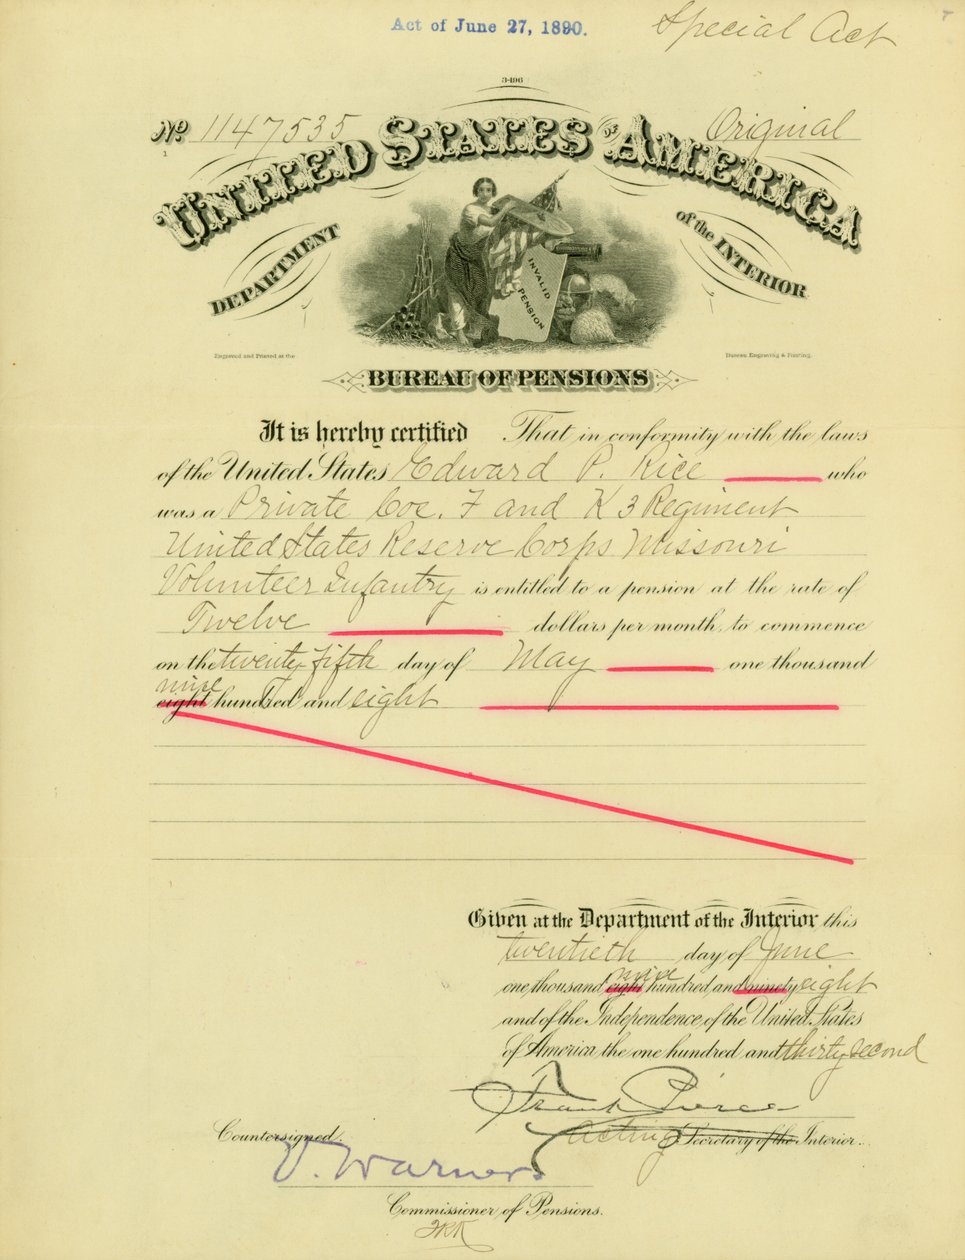 Act of June 27, 1890.
Special Act
3-496
No 1147535
Original
UNITED STATES OF AMERICA
DEPARTMENT of the INTERIOR
INVALID PENSION
Engraved and Printed at the
Bureau, Engraving & Printing.
BUREAU OF PENSIONS
It is hereby certified That in conformity with the laws
of the United States Edward P. Rice who
was a Private Coe. F and K 3 Regiment
United States Reserve Corps Missouri
Volunteer Infantry is entitled to a pension at the rate of
Twelve dollars per month, to commence
on the twenty fifth day of May one thousand
nine
eight hundred and eight
Given at the Department of the Interior this
twentieth day of June
nine
one thousand eight hundred and ninety eight
and of the Independence of the United States
of America the one hundred and thirty second
Frank Pierce
Acting Secretary of the Interior.
Countersigned,
V. Warner
Commissioner of Pensions.